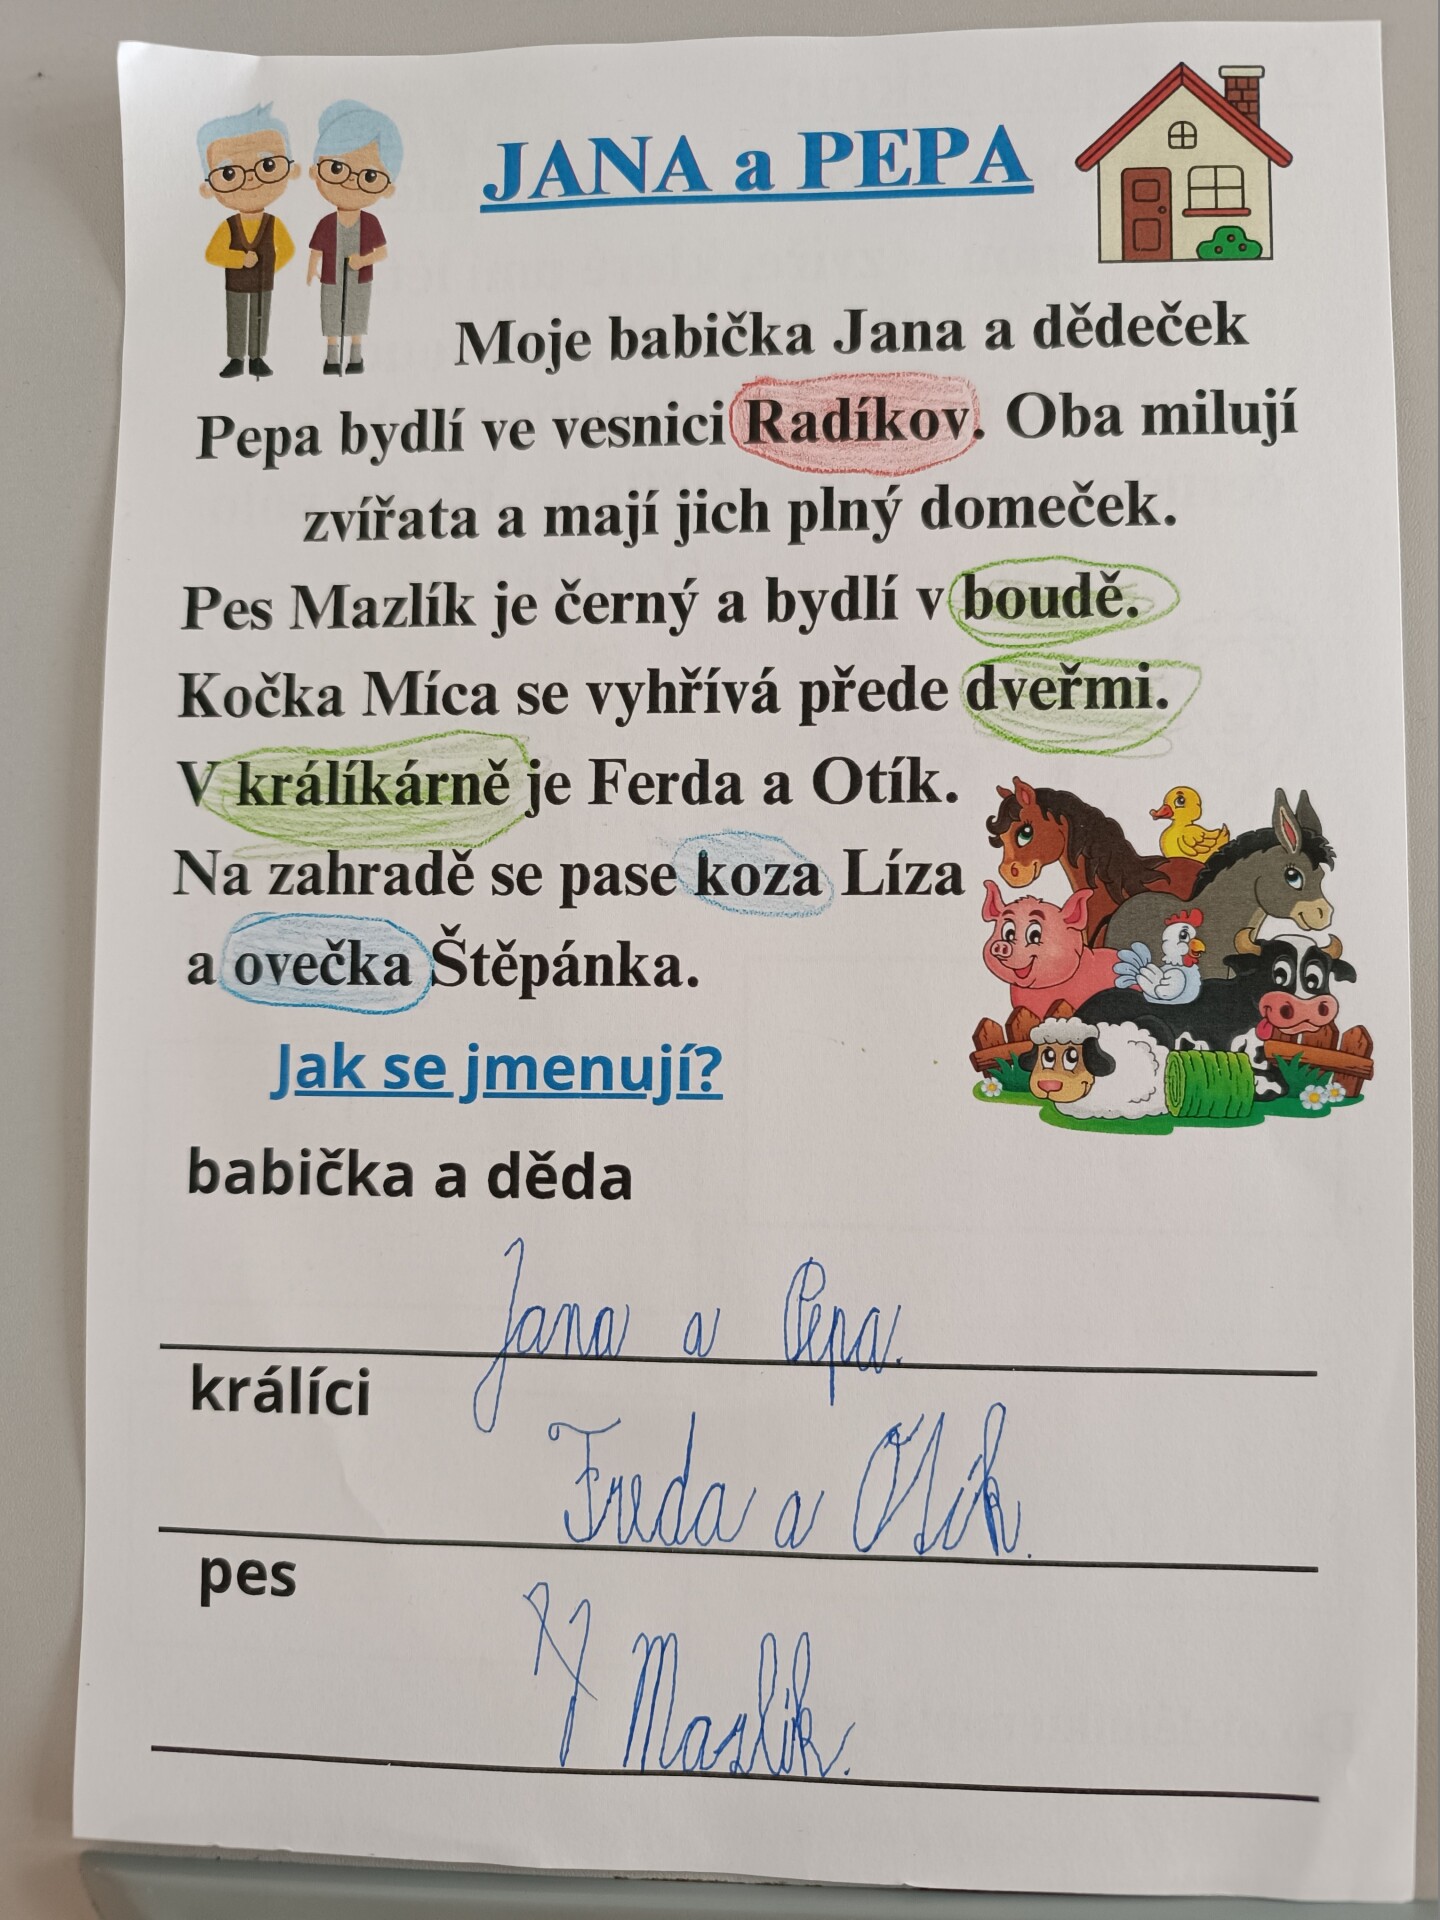 JANA a PEPA
Moje babička Jana a dědeček
Pepa bydlí ve vesnici Radíkov. Oba milují
zvířata a mají jich plný domeček.
Pes Mazlík je černý a bydlí v boudě.
Kočka Míca se vyhřívá přede dveřmi.
V králíkárně je Ferda a Otík.
Na zahradě se pase koza Líza
a ovečka Štěpánka.
Jak se jmenují?
babička a děda
Jana a Pepa.
králíci
Freda a Otík.
pes
Mazlík.